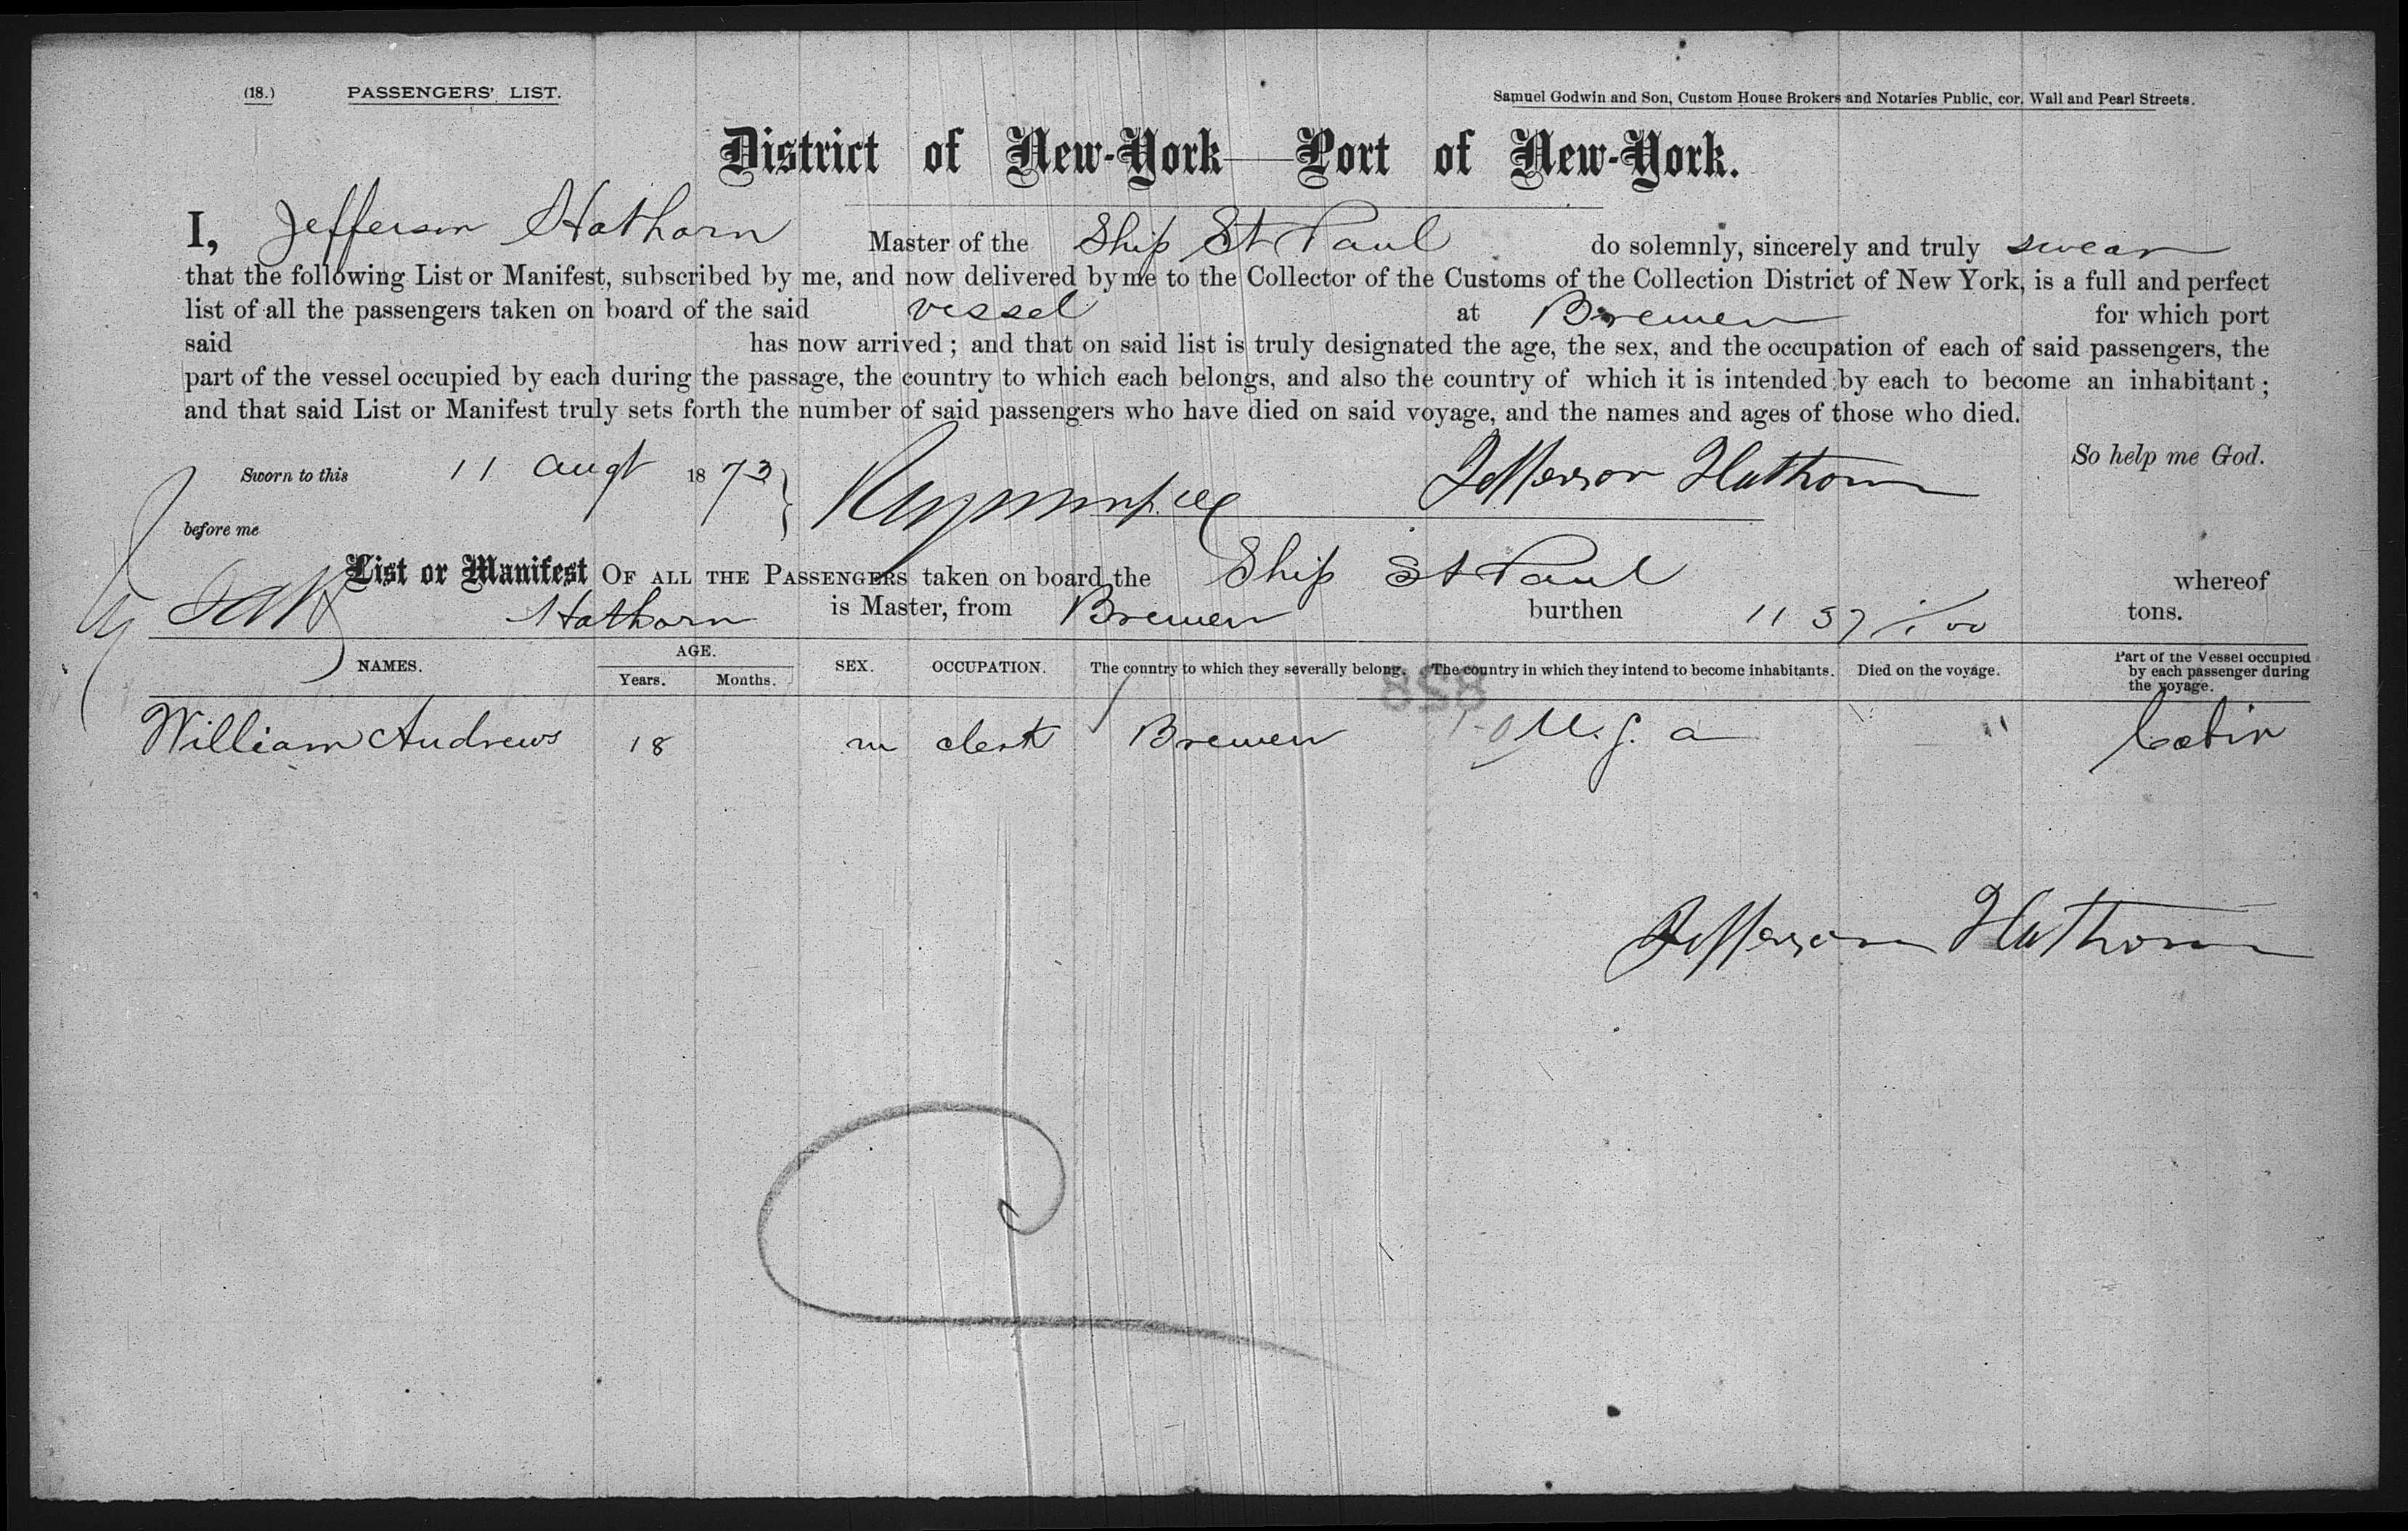 (18.) PASSENGERS' LIST. Samuel Godwin and Son, Custom House Brokers and Notaries Public, cor. Wall and Pearl Streets.
District of New-York—Port of New-York.
I, Jefferson Hathorn Master of the Ship St Paul do solemnly, sincerely and truly swear
that the following List or Manifest, subscribed by me, and now delivered by me to the Collector of the Customs of the Collection District of New York, is a full and perfect
list of all the passengers taken on board of the said vessel at Bremen for which port
said has now arrived; and that on said list is truly designated the age, the sex, and the occupation of each of said passengers, the
part of the vessel occupied by each during the passage, the country to which each belongs, and also the country of which it is intended by each to become an inhabitant;
and that said List or Manifest truly sets forth the number of said passengers who have died on said voyage, and the names and ages of those who died.
So help me God.
Sworn to this 11 Augt 1873 Jefferson Hathorn
before me
List or Manifest OF ALL THE PASSENGERS taken on board the Ship St Paul whereof
Hathorn is Master, from Bremen burthen 1137 tons.
NAMES. AGE. Years. Months. SEX. OCCUPATION. The country to which they severally belong. The country in which they intend to become inhabitants. Died on the voyage. Part of the Vessel occupied by each passenger during the voyage.
828
William Andrews 18 m clerk Bremen U. S. a " Cabin
Jefferson Hathorn